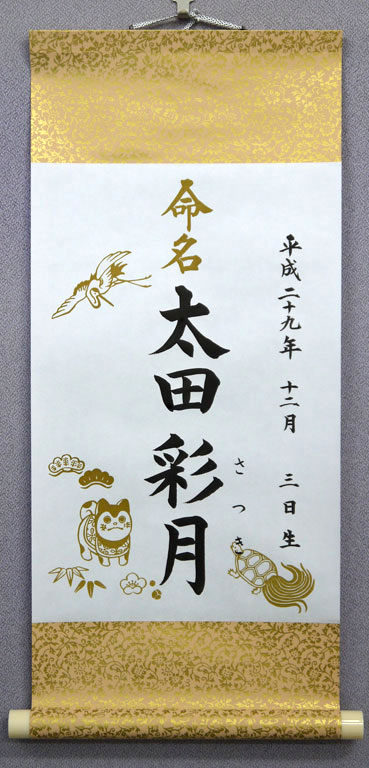 平成二十九年 十二月 三日生
命名
太田 彩月
さつき